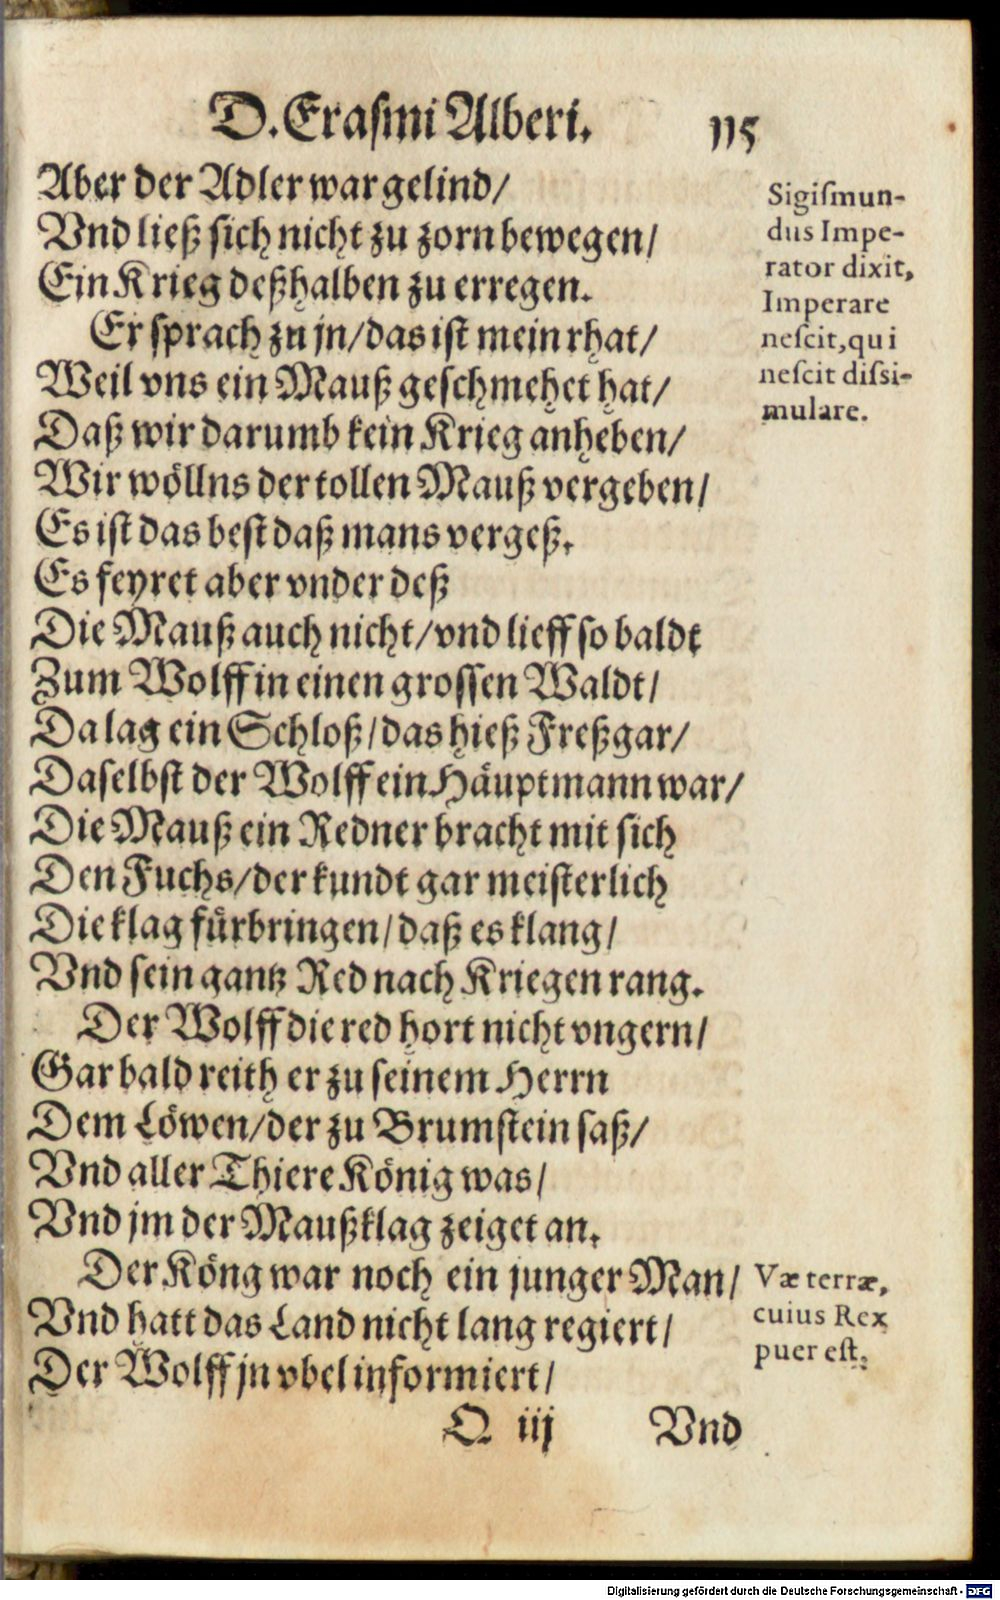 D. Erasmi Alberi. 115
Aber der Adler war gelind/
Vnd ließ sich nicht zu zorn bewegen/
Ein Krieg deßhalben zu erregen.
Er sprach zu jn/das ist mein rhat/
Weil vns ein Mauß geschmehet hat/
Daß wir darumb kein Krieg anheben/
Wir wöllns der tollen Mauß vergeben/
Es ist das best daß mans vergeß.
Es feyret aber vnder deß
Die Mauß auch nicht/vnd lieff so baldt
Zum Wolff in einen grossen Waldt/
Da lag ein Schloß/das hieß Freßgar/
Daselbst der Wolff ein Häuptmann war/
Die Mauß ein Redner bracht mit sich
Den Fuchs/der kundt gar meisterlich
Die klag fürbringen/daß es klang/
Vnd sein gantz Red nach Kriegen rang.
Der Wolff die red hort nicht vngern/
Gar bald reith er zu seinem Herrn
Dem Löwen/der zu Brumstein saß/
Vnd aller Thiere König was/
Vnd jm der Maußklag zeiget an.
Der Köng war noch ein junger Man/
Vnd hatt das Land nicht lang regiert/
Der Wolff jn vbel informiert/
Q iij Vnd
Sigiſmun-
dus Impe-
rator dixit,
Imperare
neſcit, qui
neſcit diſsi-
mulare.
Væ terræ,
cuius Rex
puer eſt.
Digitalisierung gefördert durch die Deutsche Forschungsgemeinschaft - DFG